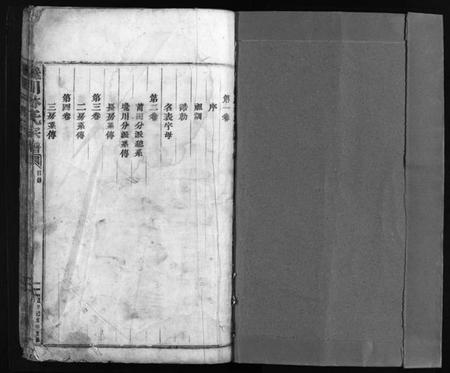 第一卷
序
祖訓
誥勅
名表字母
第二卷
莆田分派總系
湓川分派系傳
長房系傳
第三卷
二房系傳
第四卷
三房系傳
川李氏宗譜
目錄